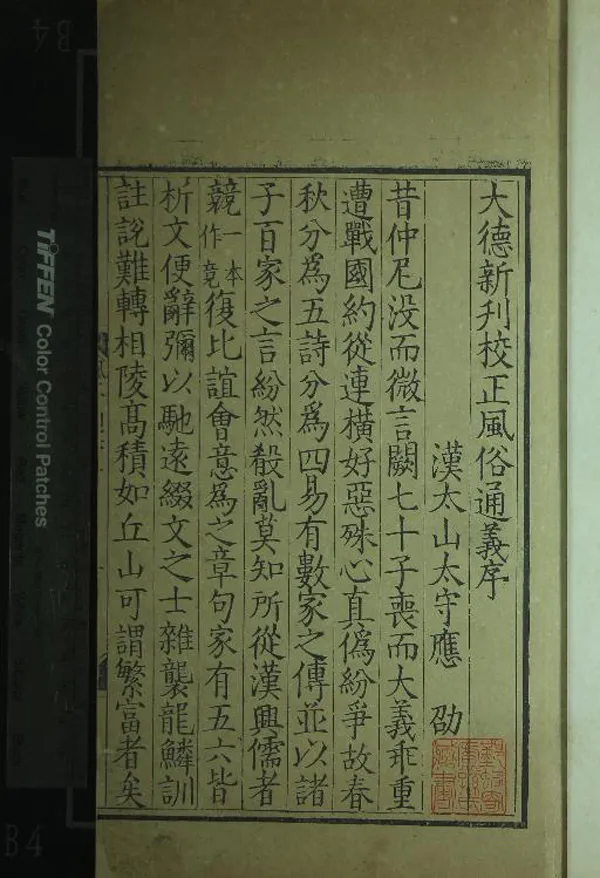 大德新刋校正風俗通義序
漢太山太守應 劭
昔仲尼没而微言闕七十子喪而大義乖重
遭戰國約從連横好惡殊心真僞紛爭故春
秋分爲五詩分爲四易有數家之傳並以諸
子百家之言紛然殽亂莫知所從漢興儒者
競一本作竟復比誼會意爲之章句家有五六皆
析文便辭彌以馳遠綴文之士雜襲龍鱗訓
註説難轉相陵髙積如丘山可謂繁富者矣
TIFFEN Color Control Patches
B4
B4